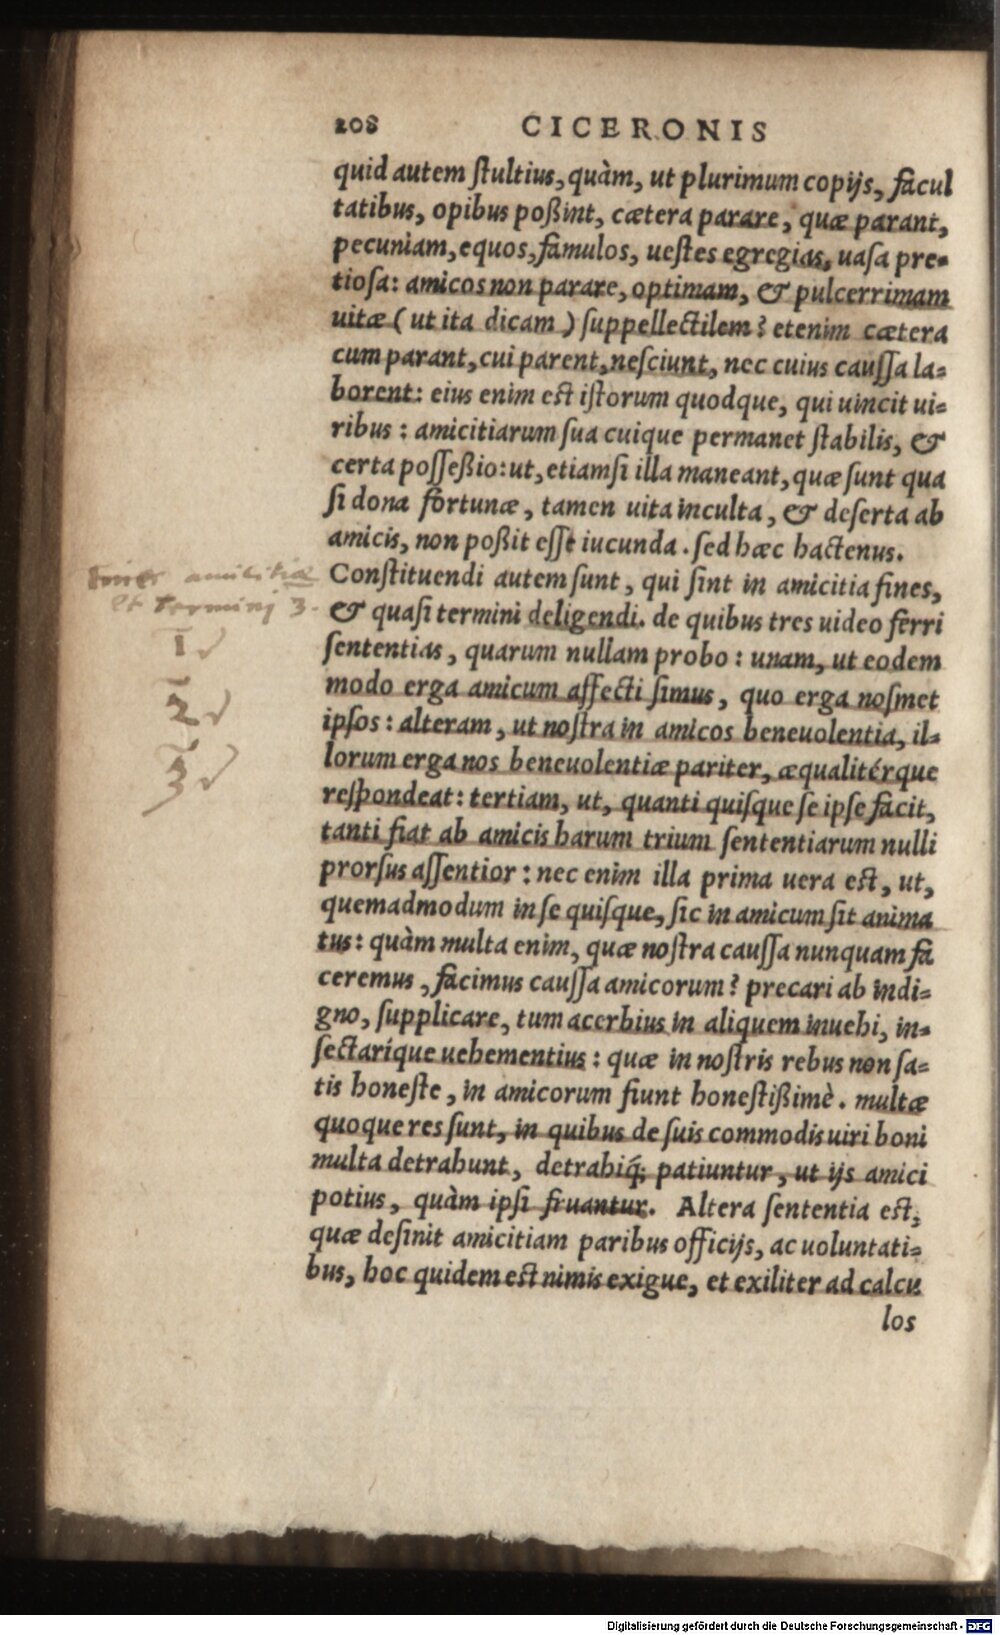 208 CICERONIS
quid autem ſtultius, quàm, ut plurimum copijs, facul
tatibus, opibus poßint, cætera parare, quæ parant,
pecuniam, equos, famulos, ueſtes egregias, uaſa pre-
tioſa: amicos non parare, optimam, & pulcerrimam
uitæ ( ut ita dicam ) ſuppellectilem? etenim cætera
cum parant, cui parent, neſciunt, nec cuius cauſſa la-
borent: eius enim est iſtorum quodque, qui uincit ui-
ribus: amicitiarum ſua cuique permanet ſtabilis, &
certa poſſeßio: ut, etiamſi illa maneant, quæ ſunt qua
ſi dona fortunæ, tamen uita inculta, & deſerta ab
amicis, non poßit eſſe iucunda. ſed hæc hactenus.
fines amicitiæ
et termini 3.
Conſtituendi autem ſunt, qui ſint in amicitia fines,
& quaſi termini deligendi. de quibus tres uideo ferri
1
ſententias, quarum nullam probo: unam, ut eodem
modo erga amicum affecti ſimus, quo erga noſmet
2
ipſos: alteram, ut noſtra in amicos beneuolentia, il-
lorum erga nos beneuolentiæ pariter, æqualitérque
3
reſpondeat: tertiam, ut, quanti quiſque ſe ipſe facit,
tanti fiat ab amicis harum trium ſententiarum nulli
prorſus aſſentior: nec enim illa prima uera est, ut,
quemadmodum in ſe quiſque, ſic in amicum ſit anima
tus: quàm multa enim, quæ noſtra cauſſa nunquam fa
ceremus, facimus cauſſa amicorum? precari ab indi-
gno, ſupplicare, tum acerbius in aliquem inuehi, in-
ſectaríque uehementius: quæ in noſtris rebus non ſa-
tis honeſte, in amicorum fiunt honeſtißimè. multæ
quoque res ſunt, in quibus de ſuis commodis uiri boni
multa detrahunt, detrahiq́; patiuntur, ut ijs amici
potius, quàm ipſi fruantur. Altera ſententia est,
quæ definit amicitiam paribus officijs, ac uoluntati-
bus, hoc quidem est nimis exigue, et exiliter ad calcu
los
Digitalisierung gefördert durch die Deutsche Forschungsgemeinschaft - DFG